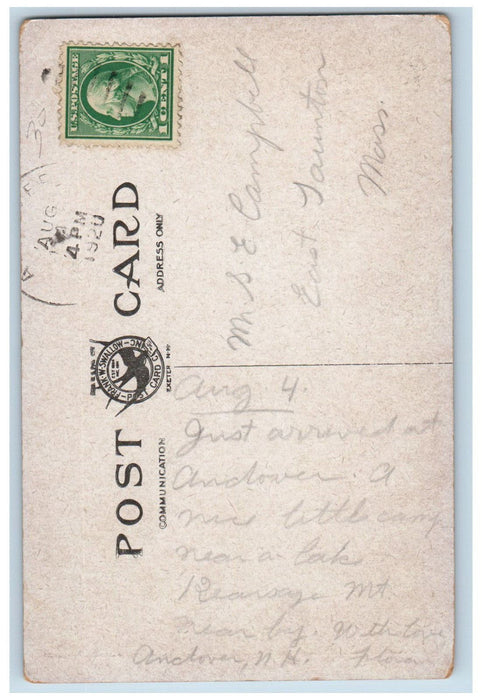 U.S. POSTAGE
1 CENT 1
AUG
4 PM
1920
POST CARD
COMMUNICATION
ADDRESS ONLY
FRANK W. SWALLOW
POST CARD CO. INC
EXETER N.H.
Mr. S E Campbell
East Taunton
Mass.
Aug 4.
Just arrived at
Andover. A
nice little camp
near a lake
Kearsage Mt
near by. With love
Andover, N.H. Flora